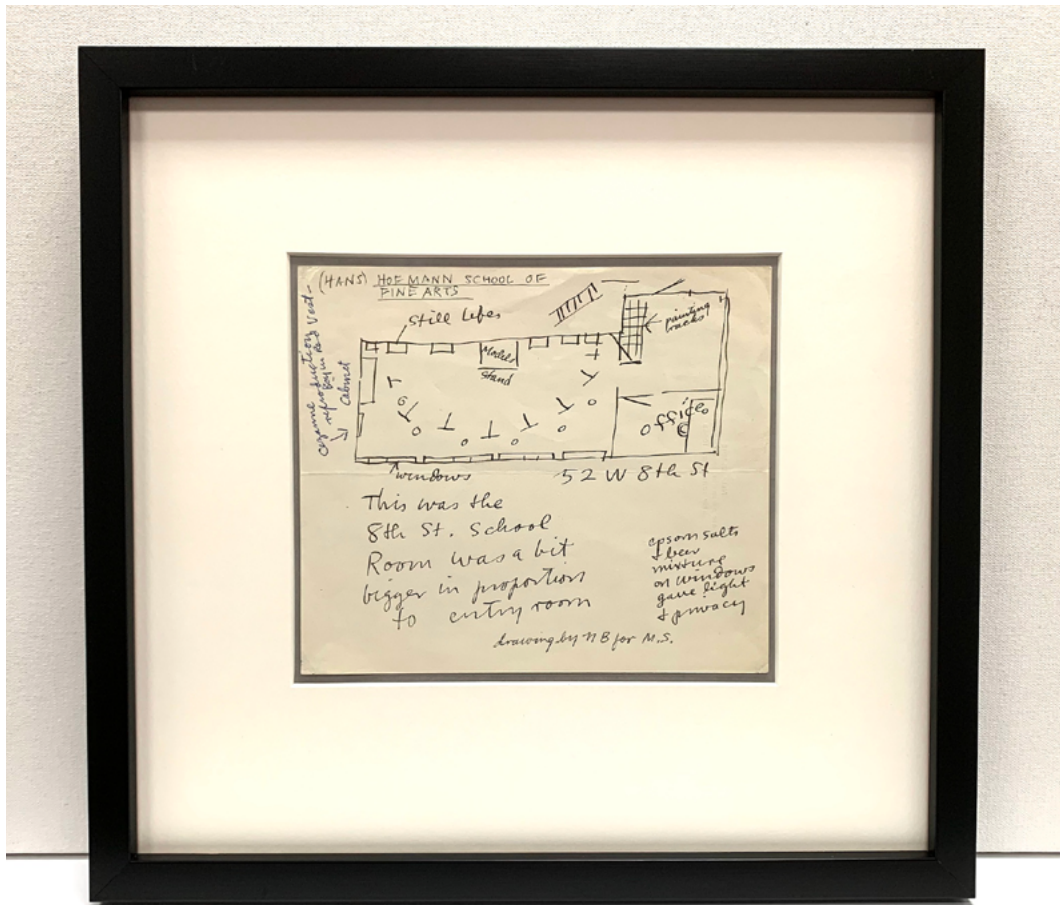 (HANS) HOFMANN SCHOOL OF
FINE ARTS
Cezanne reproduction
Boy in Red Vest -
Cabinet
Still lifes
Models
Stand
painting
racks
office
windows
52 W 8th St
This was the
8th St. School
Room was a bit
bigger in proportion
to entry room
epsom salts
& beer
mixture
on windows
gave light
& privacy
drawing by NB for M.S.